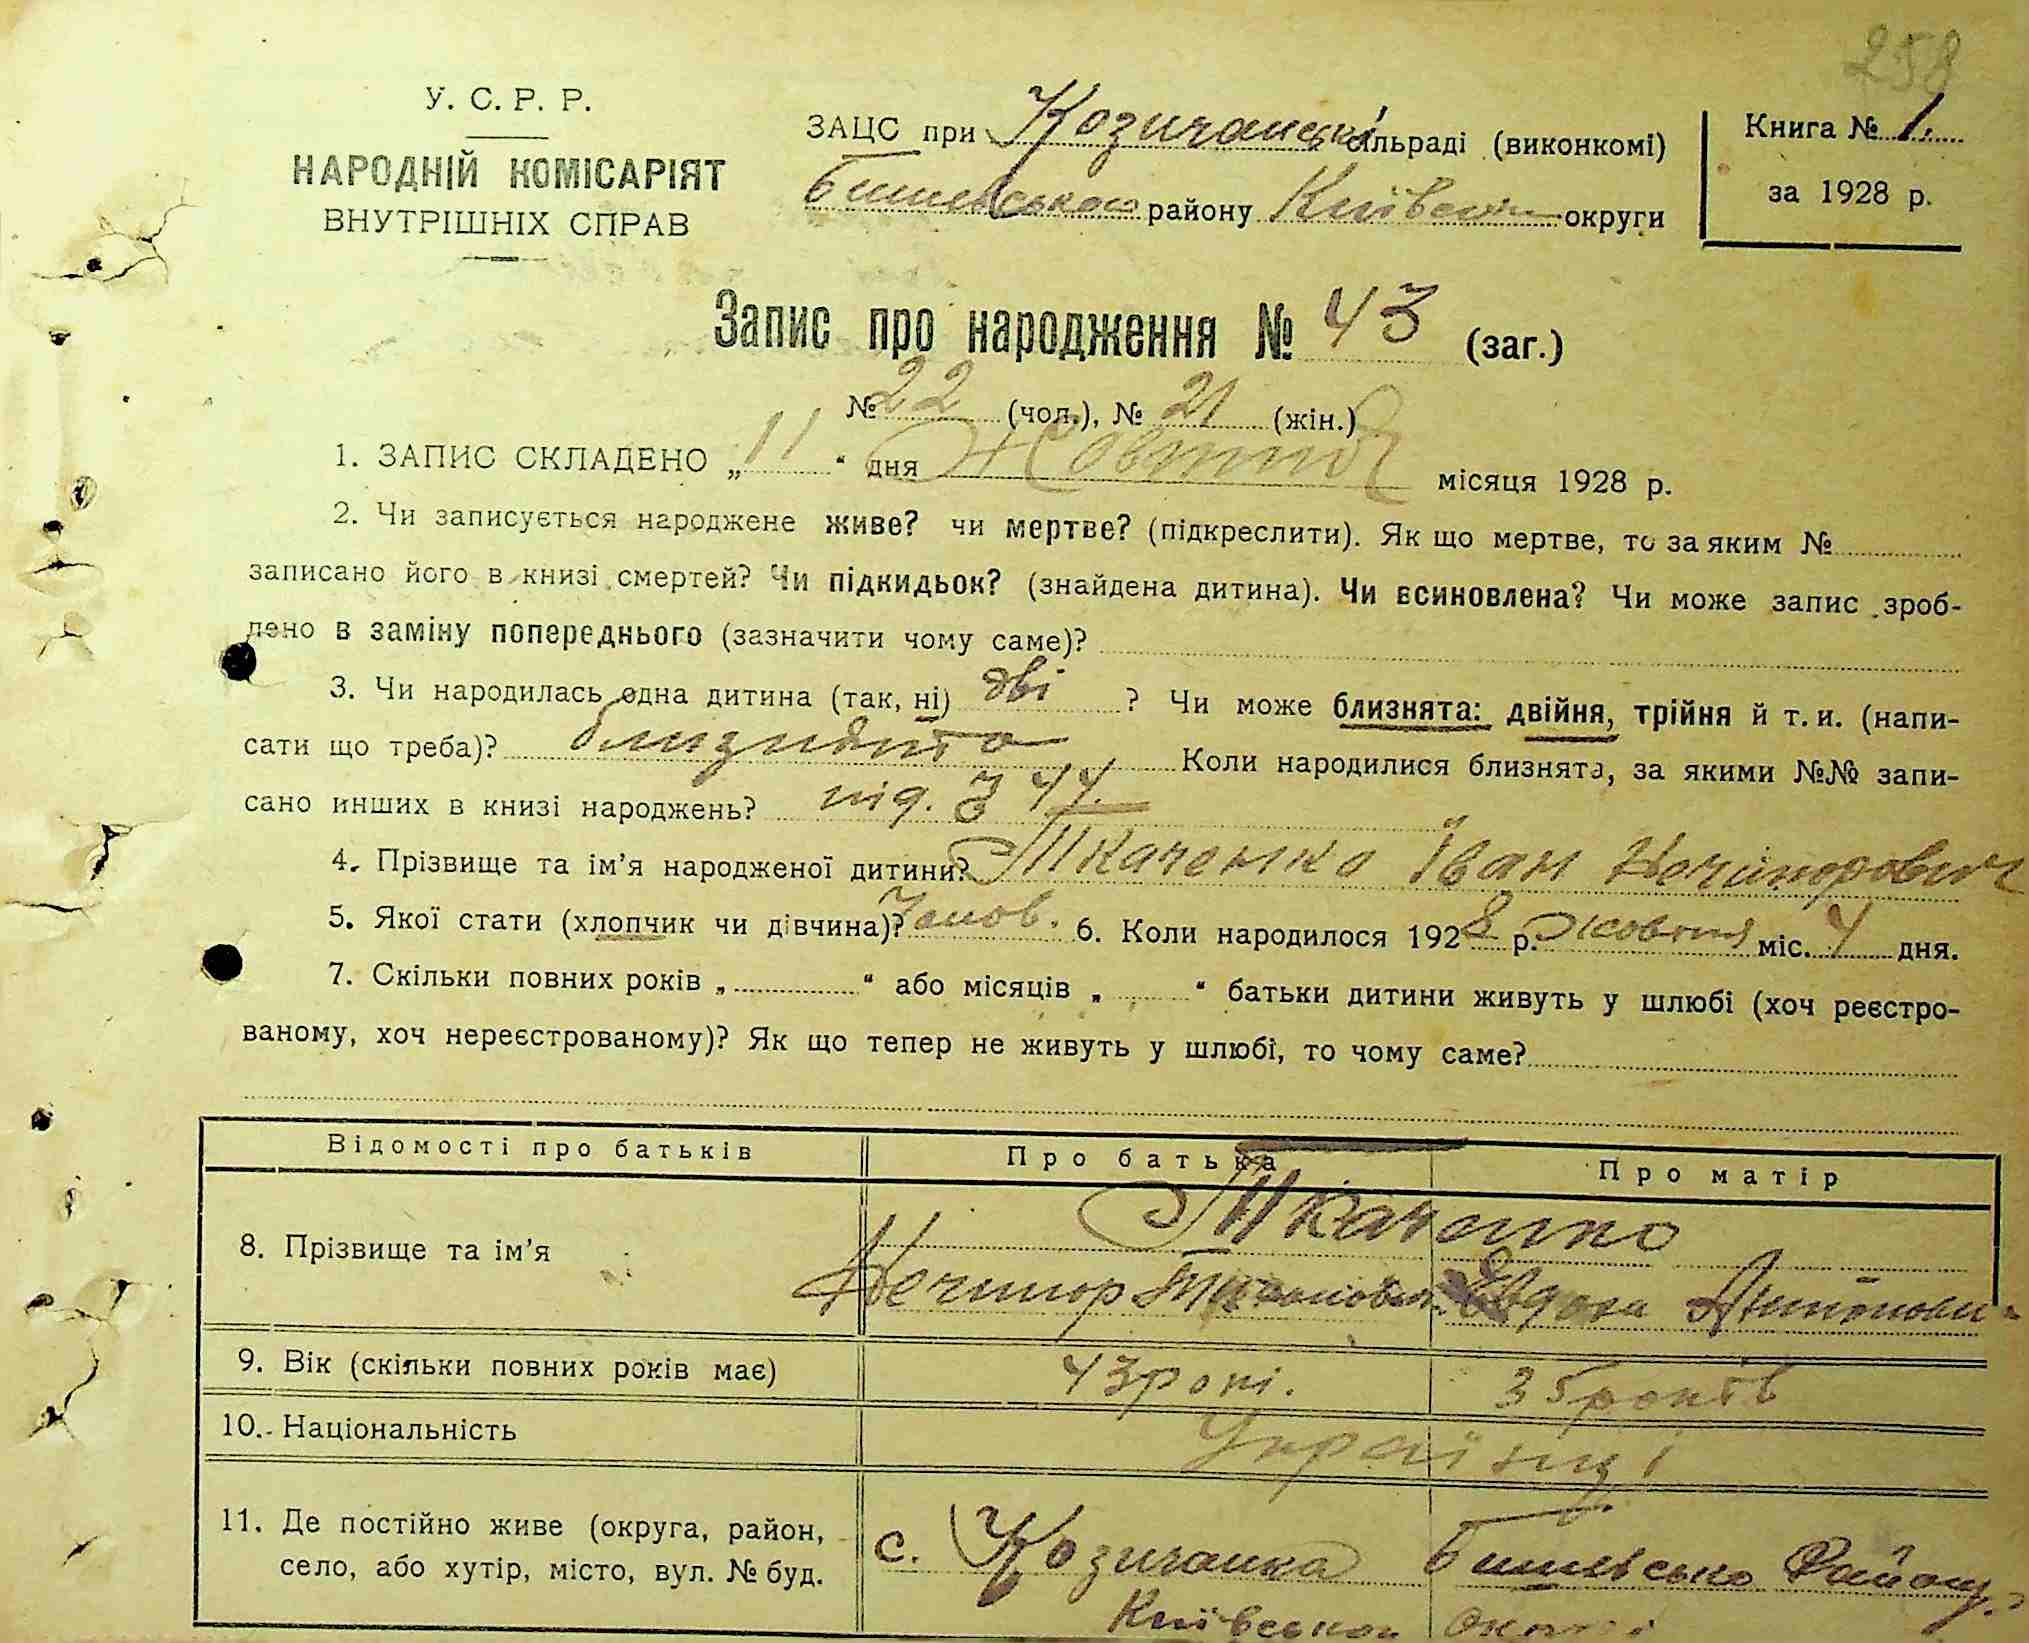 258
У. С. Р. Р.
НАРОДНІЙ КОМІСАРІЯТ
ВНУТРІШНІХ СПРАВ
ЗАЦС при Козичанській сільраді (виконкомі)
Бишевського району Київської округи
Книга № 1.
за 1928 р.
Запис про народження № 43 (заг.)
№ 22 (чол.), № 21 (жін.)
1. ЗАПИС СКЛАДЕНО „ 11 “ дня Жовтня місяця 1928 р.
2. Чи записується народжене живе? чи мертве? (підкреслити). Як що мертве, то за яким №
записано його в книзі смертей? Чи підкидьок? (знайдена дитина). Чи всиновлена? Чи може запис зроб-
лено в заміну попереднього (зазначити чому саме)?
3. Чи народилась одна дитина (так, ні) дві ? Чи може близнята: двійня, трійня й т. и. (напи-
сати що треба)? близнята Коли народилися близнята, за якими №№ запи-
сано инших в книзі народжень? під. З 44.
4. Прізвище та ім’я народженої дитини? Ткаченко Іван Нечипорович
5. Якої стати (хлопчик чи дівчина)? Чолов. 6. Коли народилося 1928 р. жовтня міс. 4 дня.
7. Скільки повних років „ “ або місяців „ “ батьки дитини живуть у шлюбі (хоч реєстро-
ваному, хоч нереєстрованому)? Як що тепер не живуть у шлюбі, то чому саме?
Відомості про батьків Про батька Про матір
Ткаченко
8. Прізвище та ім’я
Нечипор Евдоха Антонови-
9. Вік (скільки повних років має) 43 рокі. 35 років
10. Національність Українці
11. Де постійно живе (округа, район, с. Козичанка Бишевсько Району
село, або хутір, місто, вул. № буд.
Київської округі